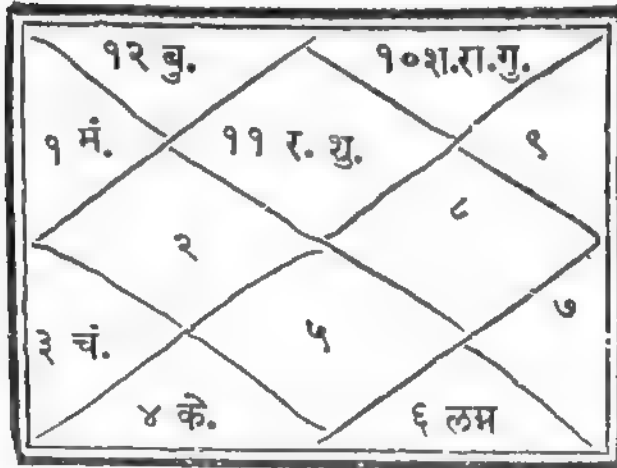 १२ बु.
१०श.रा.गु.
१ मं.
११ र. शु.
९
८
२
७
३ चं.
५
४ के.
६ लग्न